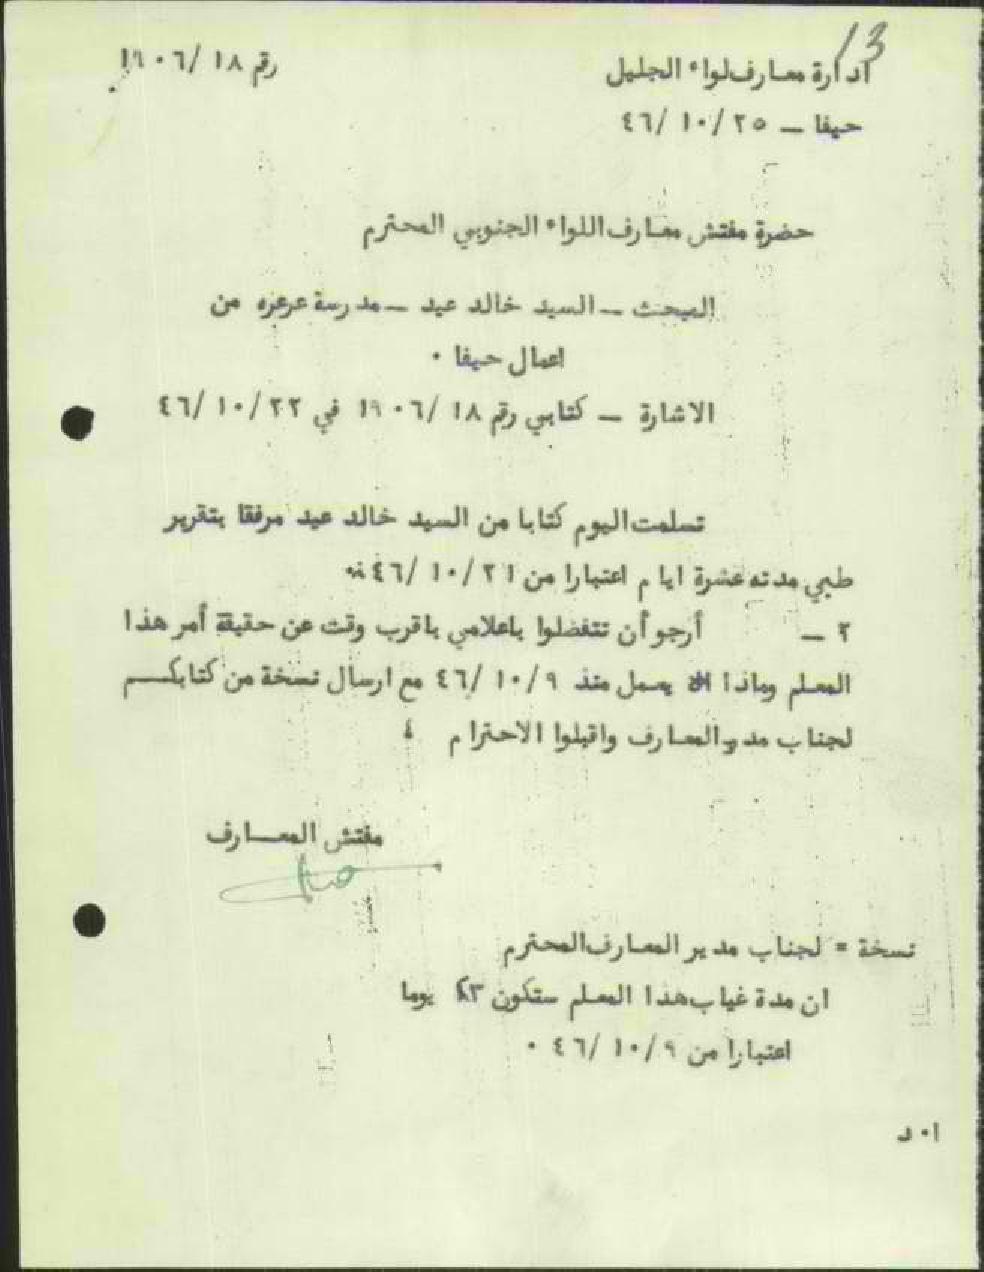 13
ادارة معارف لواء الجليل رقم ١٨/ ١٩٠٦
حيفا – ٢٥/ ١٠/ ٤٦
حضرة مفتش معارف اللواء الجنوبي المحترم
المبحث – السيد خالد عيد – مدرسة عرعره من
اعمال حيفا ٠
الاشارة – كتابي رقم ١٨/ ١٩٠٦ في ٢٢/ ١٠/ ٤٦
تسلمت اليوم كتابا من السيد خالد عيد مرفقا بتقرير
طبي مدته عشرة ايام اعتبارا من ٢١/ ١٠/ ٤٦
٢ – أرجو أن تتفضلوا باعلامي باقرب وقت عن حقيقة أمر هذا
المعلم وماذا يعمل منذ ٩/ ١٠/ ٤٦ مع ارسال نسخة من كتابكم
لجناب مدير المعارف واقبلوا الاحترام ،
مفتش المعارف
نسخة = لجناب مدير المعارف المحترم
ان مدة غياب هذا المعلم ستكون يوما
اعتبارا من ٩/ ١٠/ ٤٦ ٠
ا٠ د